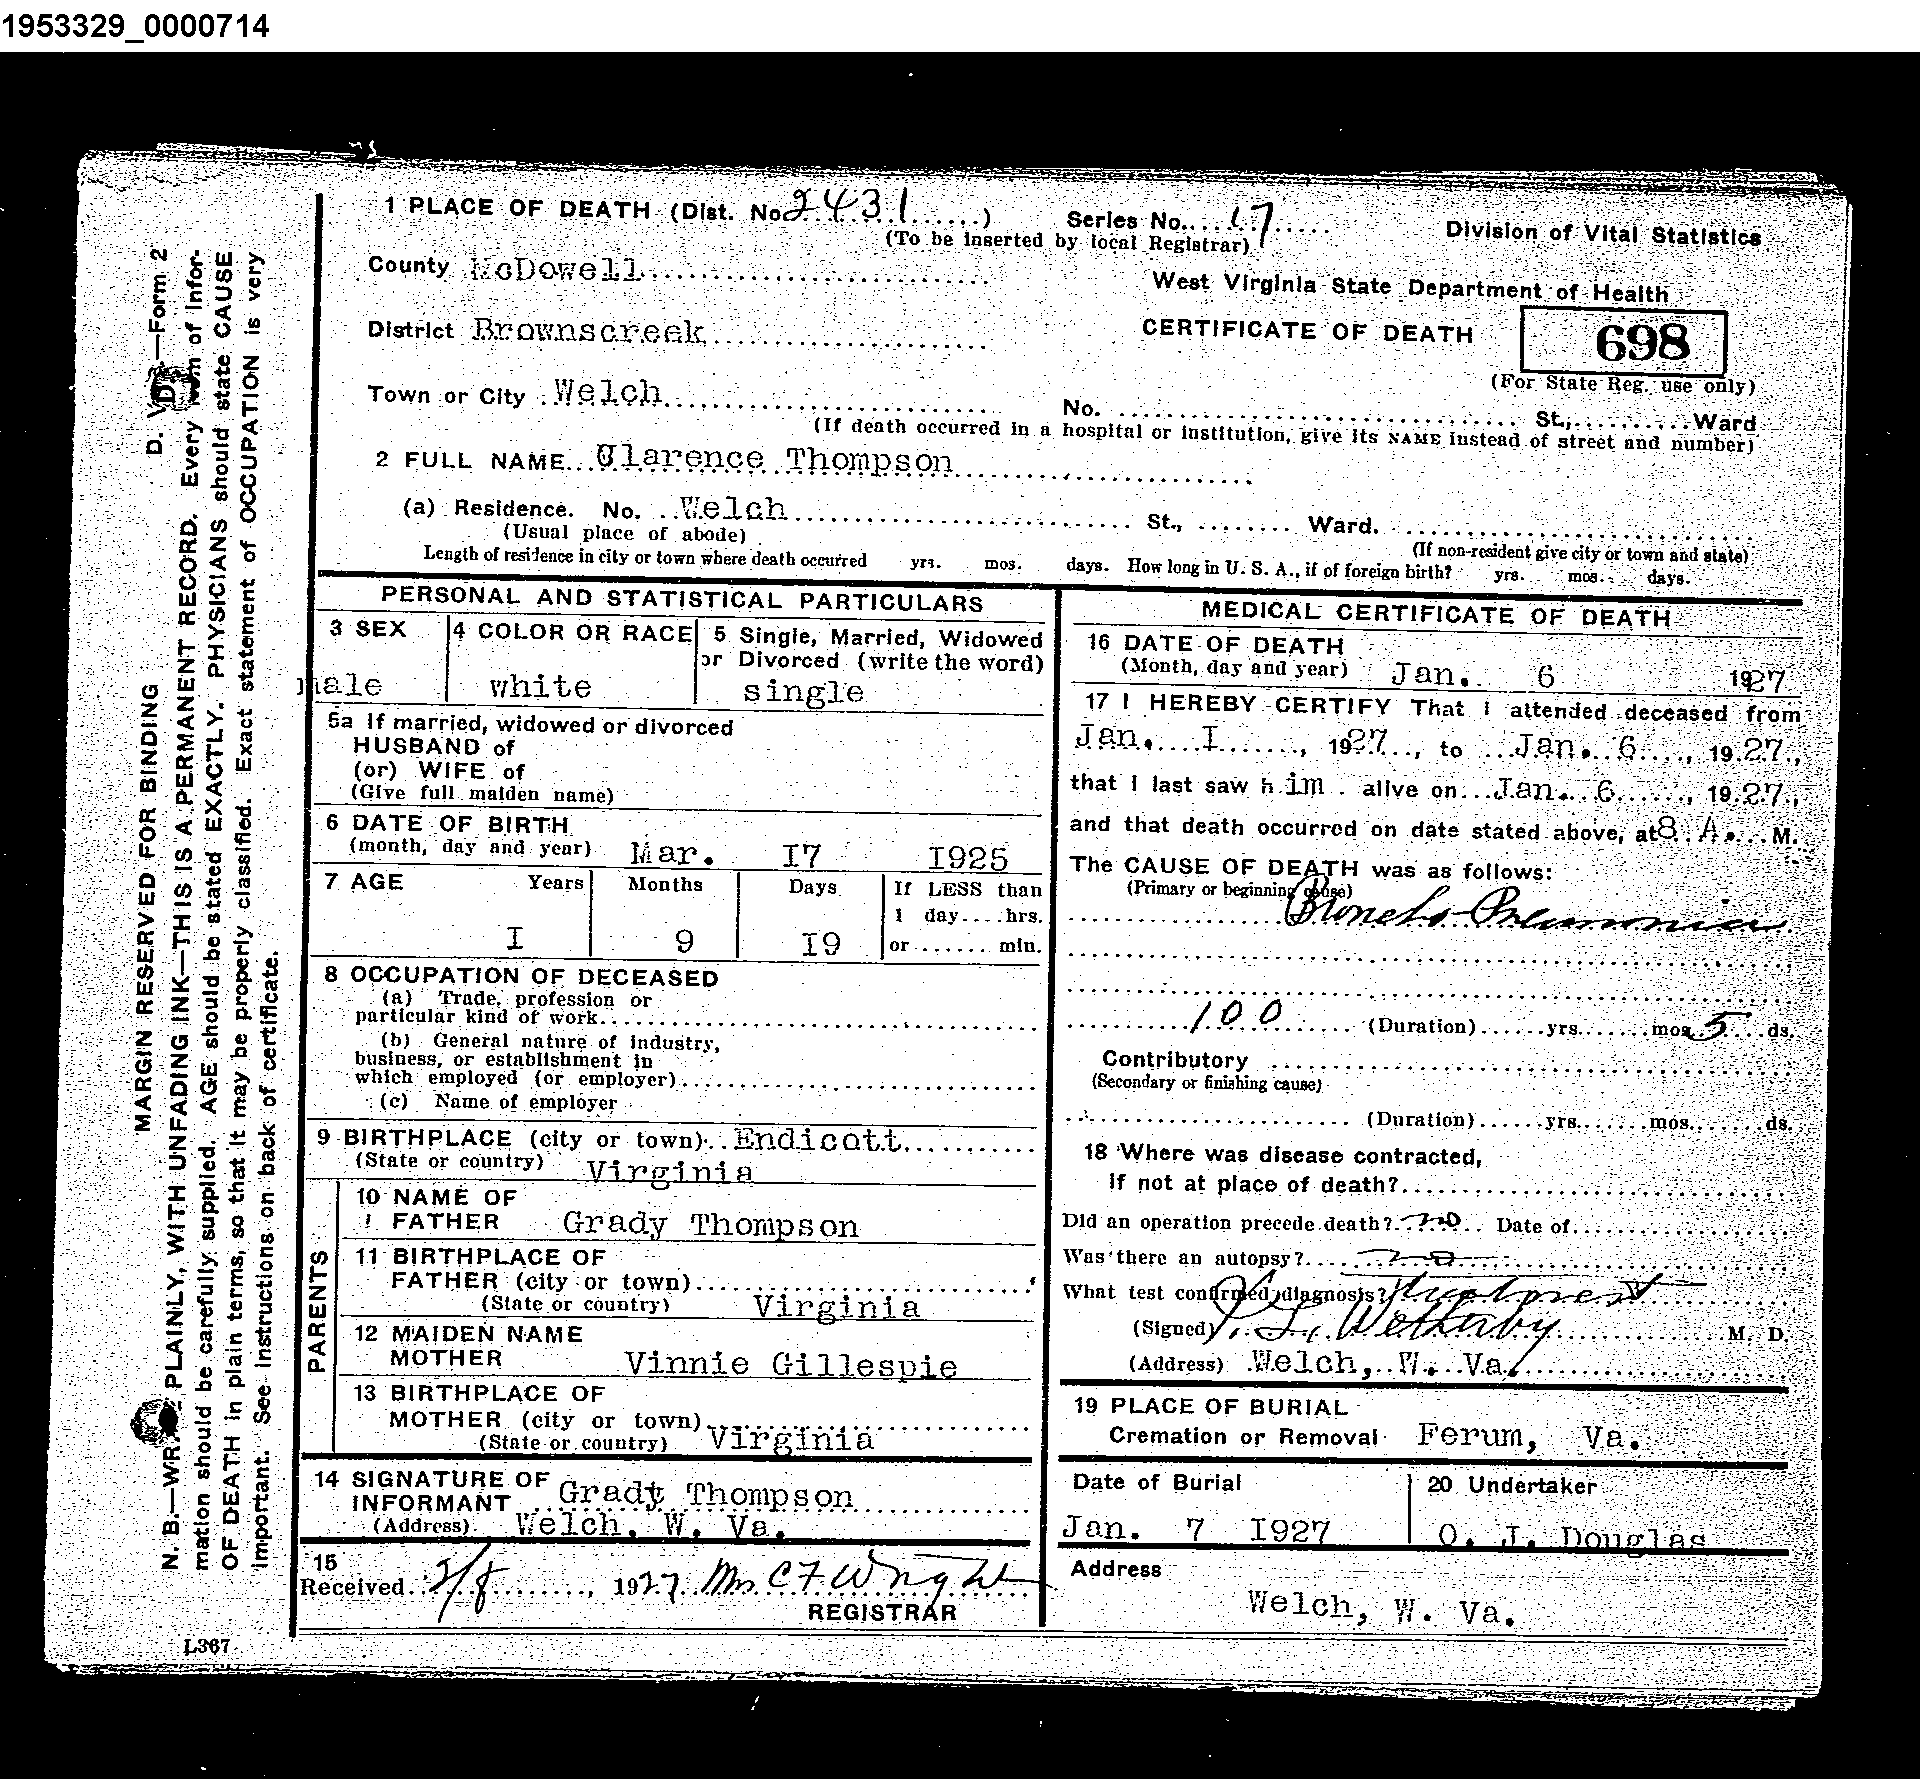 1953329_0000714
1 PLACE OF DEATH (Dist. No. 2431......) Series No.... 17......
(To be inserted by local Registrar)
Division of Vital Statistics
County McDowell
West Virginia State Department of Health
District Brownscreek
CERTIFICATE OF DEATH
698
(For State Reg. use only)
Town or City Welch
No. ........ St., ........ Ward
(If death occurred in a hospital or institution, give its NAME instead of street and number)
2 FULL NAME Clarence Thompson
(a) Residence. No. Welch ........ St., ........ Ward. ........
(Usual place of abode)
(If non-resident give city or town and state)
Length of residence in city or town where death occurred yrs. mos. days. How long in U. S. A., if of foreign birth? yrs. mos. days.
PERSONAL AND STATISTICAL PARTICULARS
3 SEX
male
4 COLOR OR RACE
white
5 Single, Married, Widowed
or Divorced (write the word)
single
5a If married, widowed or divorced
HUSBAND of
(or) WIFE of
(Give full maiden name)
6 DATE OF BIRTH
(month, day and year) Mar. I7 I925
7 AGE Years Months Days If LESS than
1 day....hrs.
or.......min.
I 9 I9
8 OCCUPATION OF DECEASED
(a) Trade, profession or
particular kind of work
(b) General nature of industry,
business, or establishment in
which employed (or employer)
(c) Name of employer
9 BIRTHPLACE (city or town) Endicott
(State or country) Virginia
PARENTS
10 NAME OF
FATHER Grady Thompson
11 BIRTHPLACE OF
FATHER (city or town)
(State or country) Virginia
12 MAIDEN NAME
MOTHER Vinnie Gillespie
13 BIRTHPLACE OF
MOTHER (city or town)
(State or country) Virginia
14 SIGNATURE OF
INFORMANT Grady Thompson
(Address) Welch, W. Va.
15
Received 2/8, 1927 Mrs C F Wright
REGISTRAR
MEDICAL CERTIFICATE OF DEATH
16 DATE OF DEATH
(Month, day and year) Jan. 6 1927
17 I HEREBY CERTIFY That I attended deceased from
Jan. I, 1927, to Jan. 6, 1927,
that I last saw him alive on Jan. 6, 1927,
and that death occurred on date stated above, at 8 A. M.
The CAUSE OF DEATH was as follows:
(Primary or beginning cause)
Broncho-Pneumonia
100 (Duration)......yrs.......mos. 5 ds.
Contributory
(Secondary or finishing cause)
(Duration)......yrs.......mos.......ds.
18 Where was disease contracted,
if not at place of death?
Did an operation precede death? no Date of
Was there an autopsy? no
What test confirmed diagnosis?
(Signed) Wetherby M. D.
(Address) Welch, W. Va.
19 PLACE OF BURIAL
Cremation or Removal Ferum, Va.
Date of Burial
Jan. 7 I927
20 Undertaker
O. J. Douglas
Address
Welch, W. Va.
D. V. D.—Form 2
MARGIN RESERVED FOR BINDING
N. B.—WRITE PLAINLY, WITH UNFADING INK—THIS IS A PERMANENT RECORD. Every item of infor-
mation should be carefully supplied. AGE should be stated EXACTLY. PHYSICIANS should state CAUSE
OF DEATH in plain terms, so that it may be properly classified. Exact statement of OCCUPATION is very
important. See instructions on back of certificate.
L367